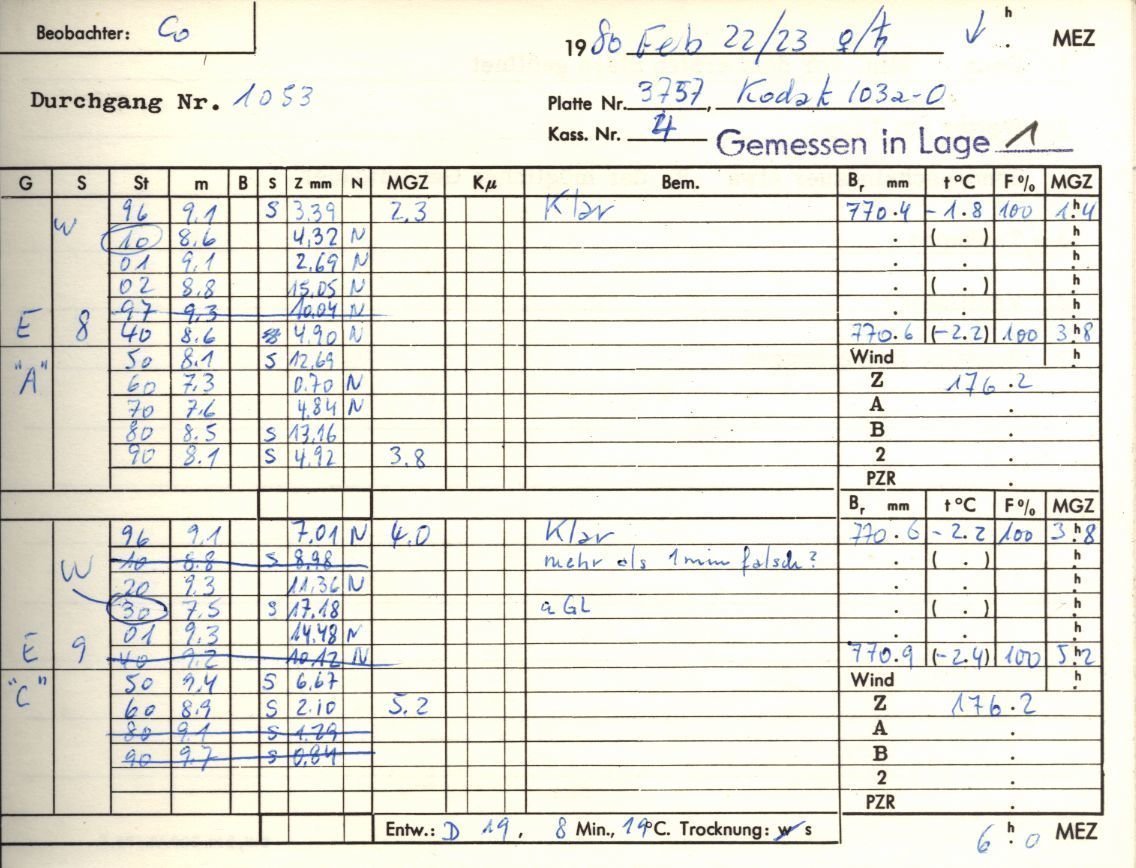 Beobachter: Co
1980 Feb 22/23 ♀/♄ ↓ h . MEZ
Durchgang Nr. 1053
Platte Nr. 3757, Kodak 103a-O
Kass. Nr. 4
Gemessen in Lage 1
G S St m B S Z mm N MGZ Kμ Bem. Br mm t°C F% MGZ
W 96 9.1 S 3.39 2.3 Klar 770.4 -1.8 100 1h.4
10 8.6 4.32 N . ( . ) h.
01 9.1 2.69 N . . h.
02 8.8 15.05 N . ( . ) h.
97 9.3 10.04 N . . h.
E 8 40 8.6 4.90 N 770.6 (-2.2) 100 3h.8
50 8.1 S 12.69 Wind h.
"A" 60 7.3 0.70 N Z 176.2
70 7.6 4.84 N A .
80 8.5 S 13.16 B .
90 8.1 S 4.92 3.8 2 .
PZR .
Br mm t°C F% MGZ
96 9.1 7.01 N 4.0 Klar 770.6 -2.2 100 3h.8
W 10 8.8 S 8.98 mehr als 1min falsch? . ( . ) h.
20 9.3 11.36 N . . h.
30 7.5 S 17.18 a GL . ( . ) h.
01 9.3 14.48 N . . h.
E 9 40 9.2 10.12 N 770.9 (-2.4) 100 5h.2
"C" 50 9.4 S 6.67 Wind h.
60 8.9 S 2.10 5.2 Z 176.2
80 9.1 S 1.29 A .
90 9.7 S 0.84 B .
2 .
PZR .
Entw.: D 19, 8 Min., 19°C. Trocknung: w s 6h.0 MEZ